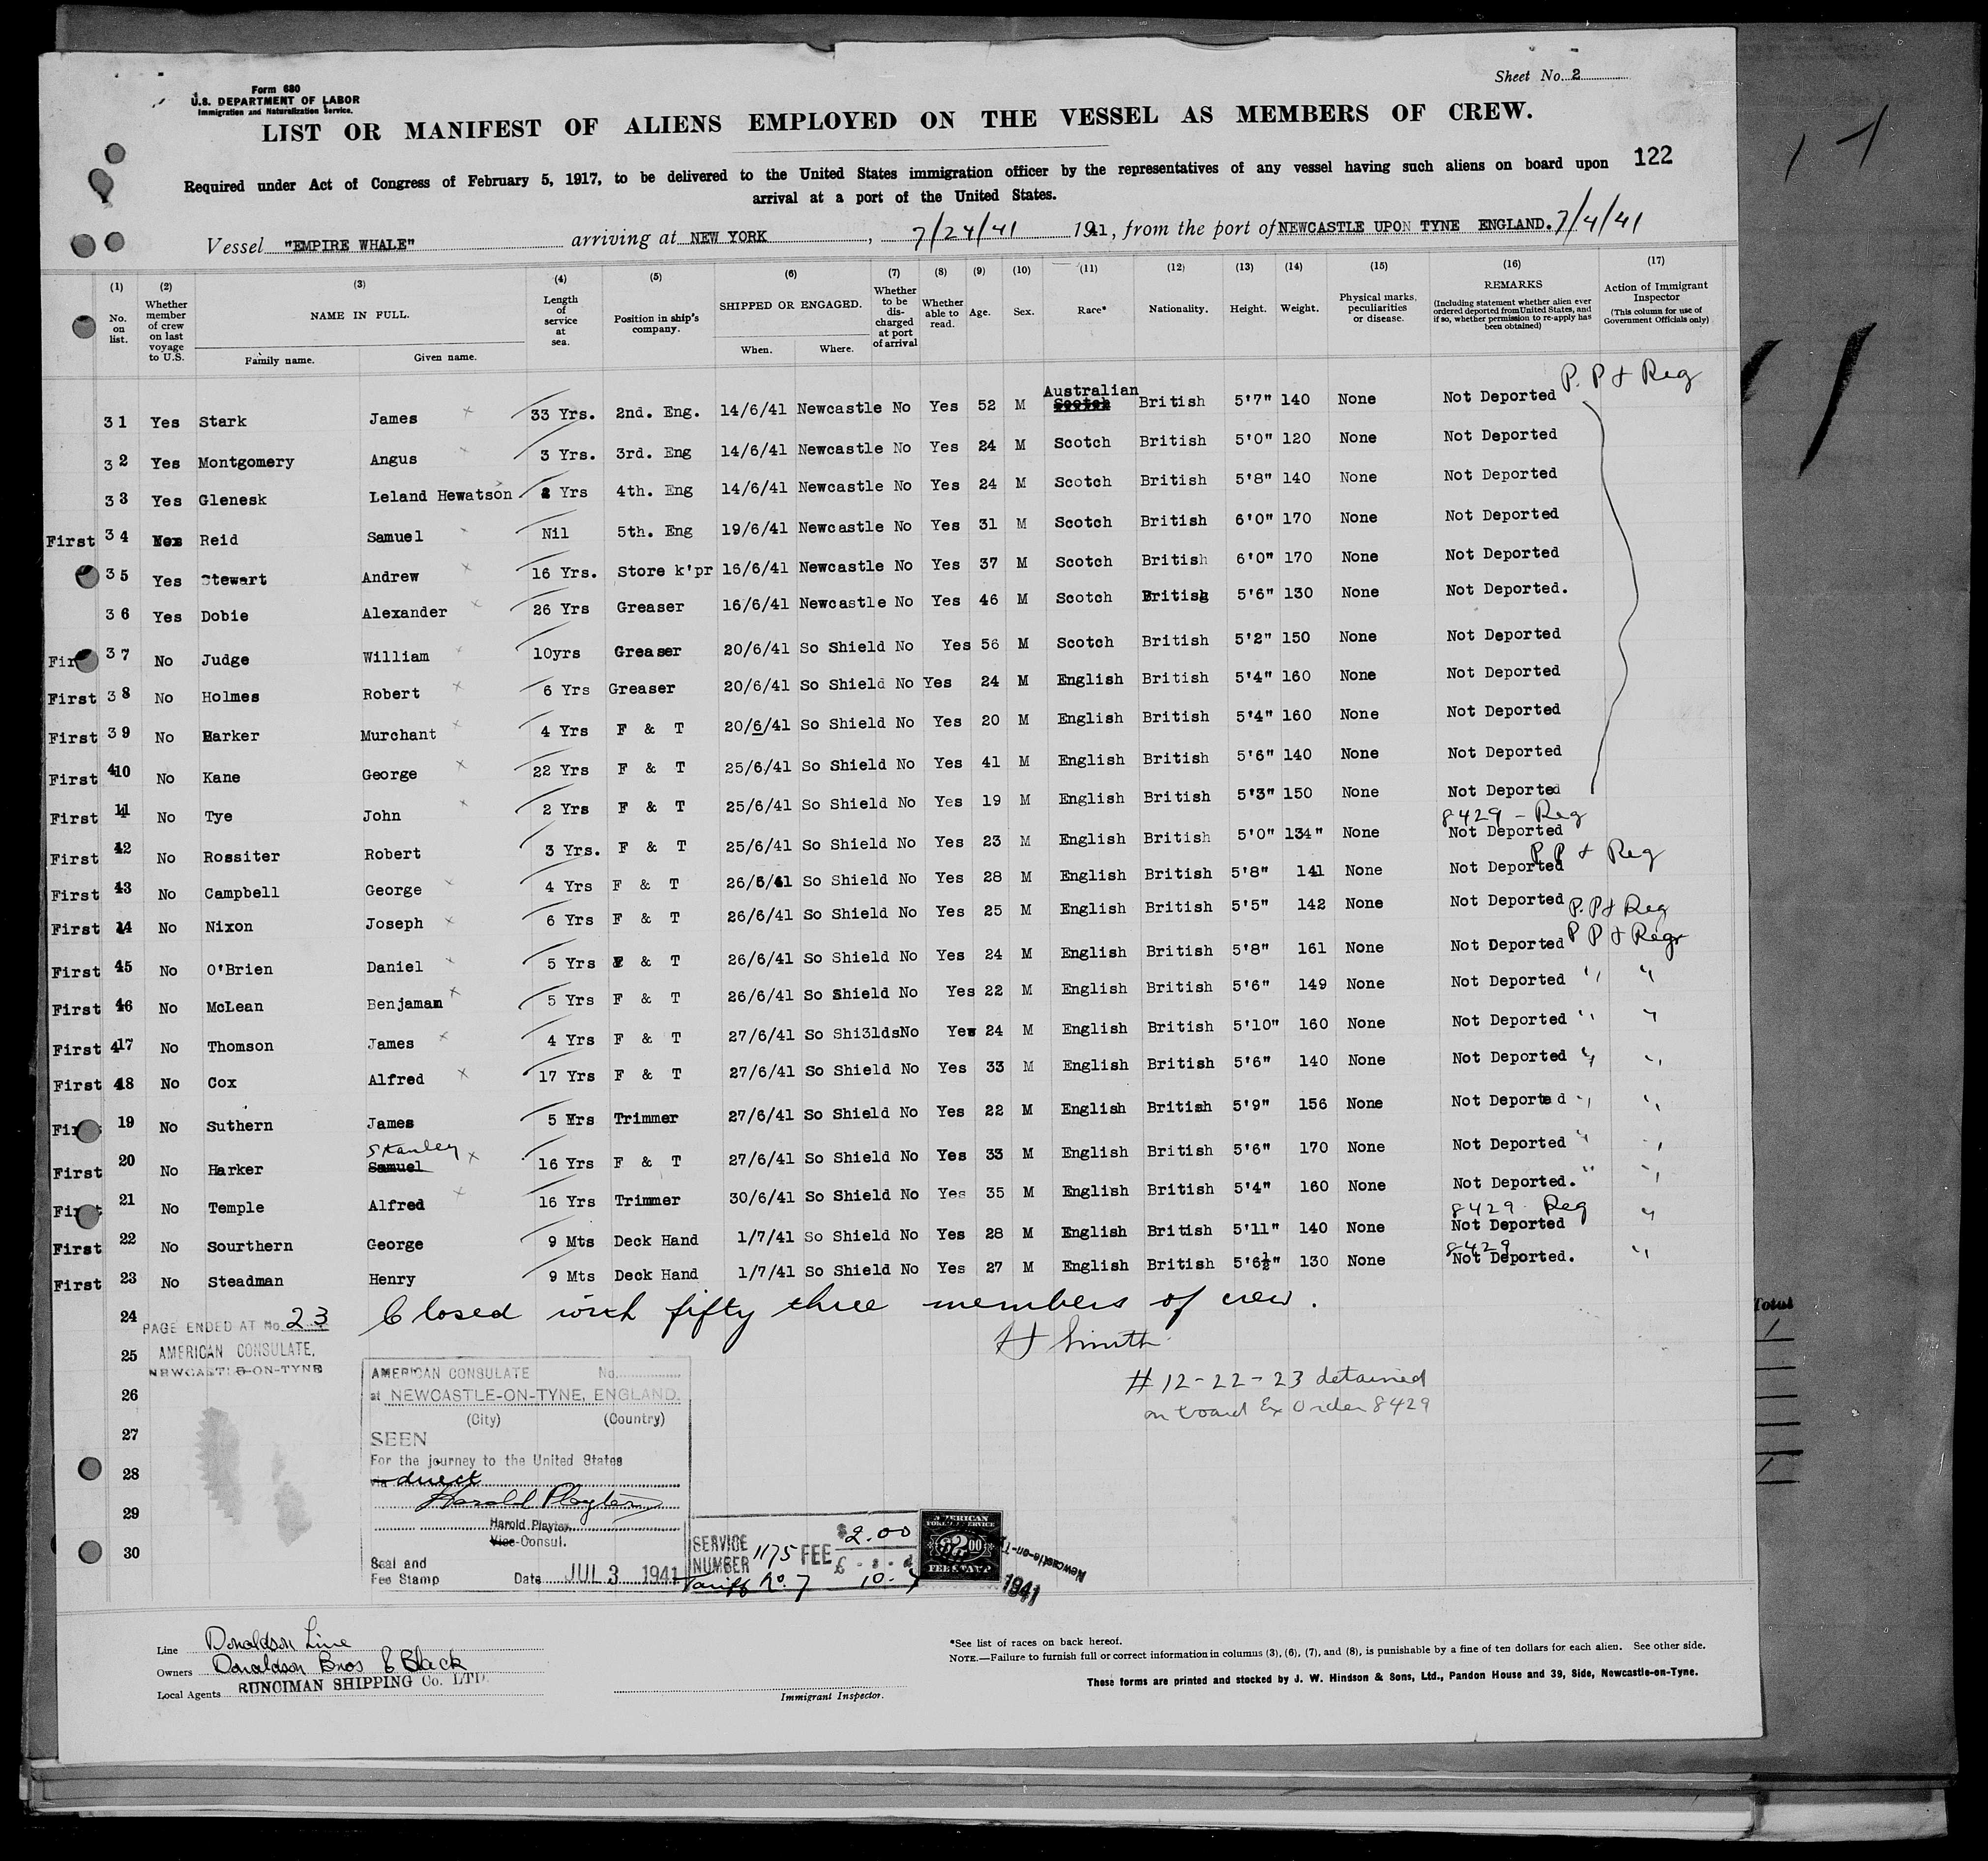 Sheet No. 2
Form 680
U.S. DEPARTMENT OF LABOR
Immigration and Naturalization Service.
LIST OR MANIFEST OF ALIENS EMPLOYED ON THE VESSEL AS MEMBERS OF CREW.
122
Required under Act of Congress of February 5, 1917, to be delivered to the United States immigration officer by the representatives of any vessel having such aliens on board upon
arrival at a port of the United States.
Vessel "EMPIRE WHALE" arriving at NEW YORK, 7/24/41 1941, from the port of NEWCASTLE UPON TYNE ENGLAND. 7/4/41
(1) (2) (3) (4) (5) (6) (7) (8) (9) (10) (11) (12) (13) (14) (15) (16) (17)
No. on list. Whether member of crew on last voyage to U.S. NAME IN FULL. Family name. Given name. Length of service at sea. Position in ship's company. SHIPPED OR ENGAGED. When. Where. Whether to be discharged at port of arrival Whether able to read. Age. Sex. Race* Nationality. Height. Weight. Physical marks, peculiarities or disease. REMARKS (Including statement whether alien ever ordered deported from United States, and if so, whether permission to re-apply has been obtained) Action of Immigrant Inspector (This column for use of Government Officials only)
P. P & Reg
Australian
31 Yes Stark James 33 Yrs. 2nd. Eng. 14/6/41 Newcastle No Yes 52 M Scotch British 5'7" 140 None Not Deported
32 Yes Montgomery Angus 3 Yrs. 3rd. Eng 14/6/41 Newcastle No Yes 24 M Scotch British 5'0" 120 None Not Deported
33 Yes Glenesk Leland Hewatson 2 Yrs 4th. Eng 14/6/41 Newcastle No Yes 24 M Scotch British 5'8" 140 None Not Deported
First 34 Reid Samuel Nil 5th. Eng 19/6/41 Newcastle No Yes 31 M Scotch British 6'0" 170 None Not Deported
35 Yes Stewart Andrew 16 Yrs. Store k'pr 16/6/41 Newcastle No Yes 37 M Scotch British 6'0" 170 None Not Deported
36 Yes Dobie Alexander 26 Yrs Greaser 16/6/41 Newcastle No Yes 46 M Scotch British 5'6" 130 None Not Deported.
Fir 37 No Judge William 10yrs Greaser 20/6/41 So Shield No Yes 56 M Scotch British 5'2" 150 None Not Deported
First 38 No Holmes Robert 6 Yrs Greaser 20/6/41 So Shield No Yes 24 M English British 5'4" 160 None Not Deported
First 39 No Barker Murchant 4 Yrs F & T 20/6/41 So Shield No Yes 20 M English British 5'4" 160 None Not Deported
First 410 No Kane George 22 Yrs F & T 25/6/41 So Shield No Yes 41 M English British 5'6" 140 None Not Deported
First 11 No Tye John 2 Yrs F & T 25/6/41 So Shield No Yes 19 M English British 5'3" 150 None Not Deported
8429 - Reg
First 42 No Rossiter Robert 3 Yrs. F & T 25/6/41 So Shield No Yes 23 M English British 5'0" 134" None Not Deported
P P & Reg
First 43 No Campbell George 4 Yrs F & T 26/6/41 So Shield No Yes 28 M English British 5'8" 141 None Not Deported
First 14 No Nixon Joseph 6 Yrs F & T 26/6/41 So Shield No Yes 25 M English British 5'5" 142 None Not Deported P. P & Reg
First 45 No O'Brien Daniel 5 Yrs F & T 26/6/41 So Shield No Yes 24 M English British 5'8" 161 None Not Deported P P & Regr
First 46 No McLean Benjaman 5 Yrs F & T 26/6/41 So Shield No Yes 22 M English British 5'6" 149 None Not Deported " "
First 417 No Thomson James 4 Yrs F & T 27/6/41 So Shi3lds No Yes 24 M English British 5'10" 160 None Not Deported " "
First 48 No Cox Alfred 17 Yrs F & T 27/6/41 So Shield No Yes 33 M English British 5'6" 140 None Not Deported " "
Fir 19 No Suthern James 5 Yrs Trimmer 27/6/41 So Shield No Yes 22 M English British 5'9" 156 None Not Deported " "
Stanley
First 20 No Harker Samuel 16 Yrs F & T 27/6/41 So Shield No Yes 33 M English British 5'6" 170 None Not Deported " "
First 21 No Temple Alfred 16 Yrs Trimmer 30/6/41 So Shield No Yes 35 M English British 5'4" 160 None Not Deported. " "
8429 Reg "
First 22 No Sourthern George 9 Mts Deck Hand 1/7/41 So Shield No Yes 28 M English British 5'11" 140 None Not Deported
8429 "
First 23 No Steadman Henry 9 Mts Deck Hand 1/7/41 So Shield No Yes 27 M English British 5'6½" 130 None Not Deported.
24 Closed with fifty three members of crew.
PAGE ENDED AT No. 23
H Smith
25 AMERICAN CONSULATE,
NEWCASTLE-ON-TYNE
26
27
28
29
30
# 12-22-23 detained
on board Ex Order 8429
AMERICAN CONSULATE No.
at NEWCASTLE-ON-TYNE, ENGLAND.
(City) (Country)
SEEN
For the journey to the United States
via direct
Harold Playter
Harold Playter
Vice-Consul.
Seal and
Fee Stamp Date JUL 3 1941
SERVICE NUMBER 1175 FEE $2.00
£ - s - d
Tariff No. 7 10.
AMERICAN
FOREIGN SERVICE
$2.00
FEE STAMP
Newcastle-on-T
1941
Total
Line Donaldson Line
Owners Donaldson Bros & Black
Local Agents RUNCIMAN SHIPPING Co. LTD.
Immigrant Inspector.
*See list of races on back hereof.
NOTE.—Failure to furnish full or correct information in columns (3), (6), (7), and (8), is punishable by a fine of ten dollars for each alien. See other side.
These forms are printed and stocked by J. W. Hindson & Sons, Ltd., Pandon House and 39, Side, Newcastle-on-Tyne.